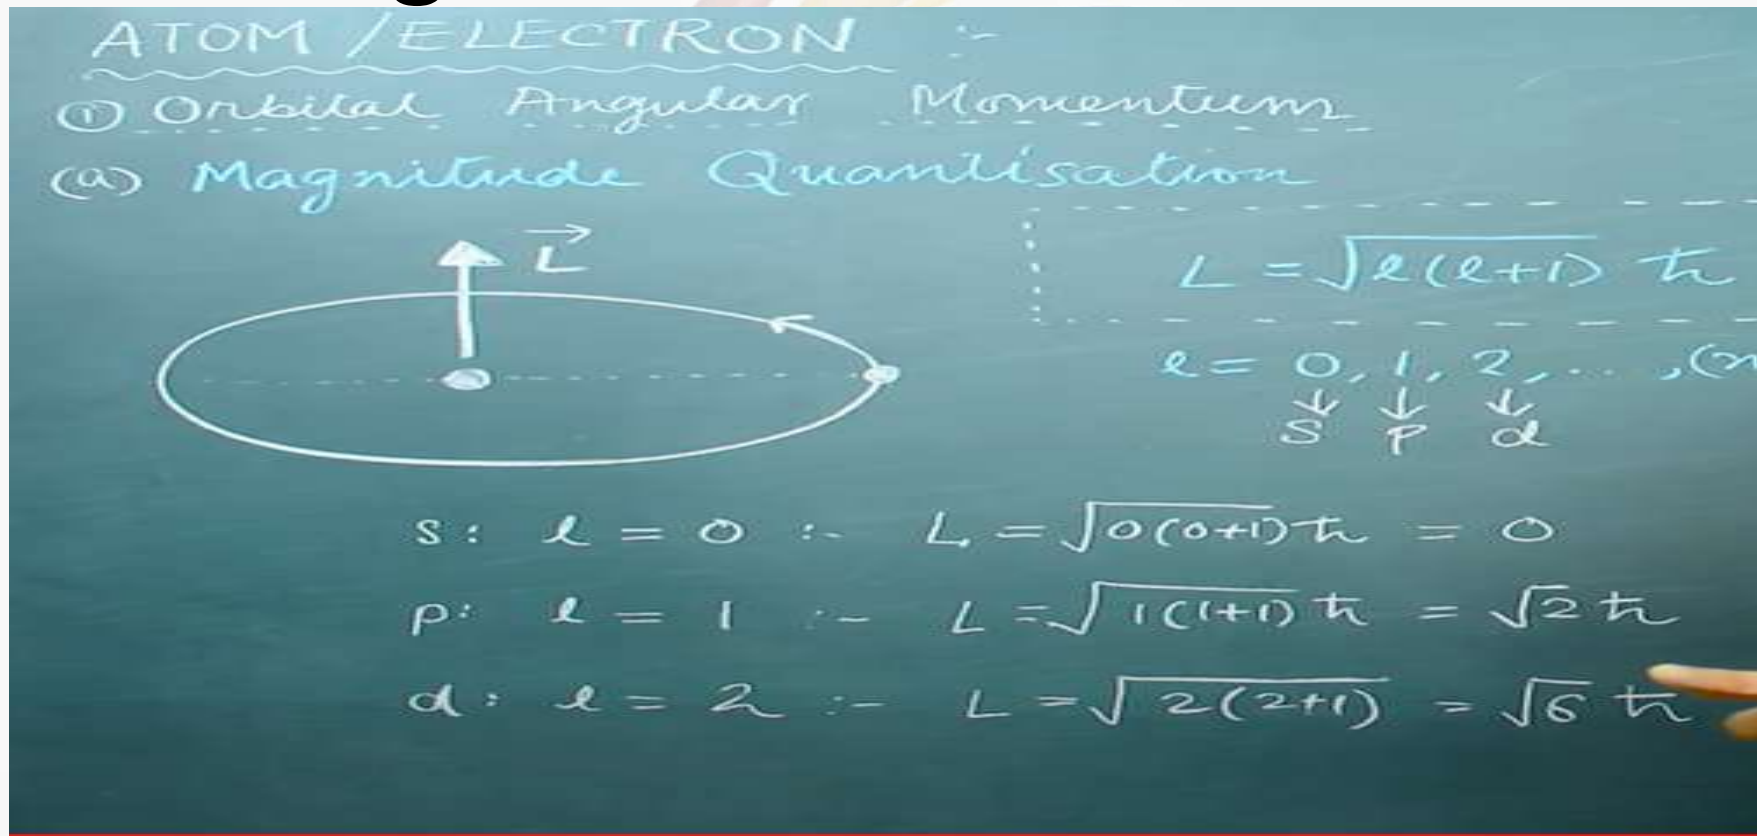 ATOM / ELECTRON :-
① Orbital Angular Momentum
(a) Magnitude Quantisation
L⃗
L = √l(l+1) ħ
l = 0, 1, 2, ... , (n
↓ ↓ ↓
S P d
s : l = 0 :- L = √0(0+1) ħ = 0
p : l = 1 :- L = √1(1+1) ħ = √2 ħ
d : l = 2 :- L = √2(2+1) = √6 ħ